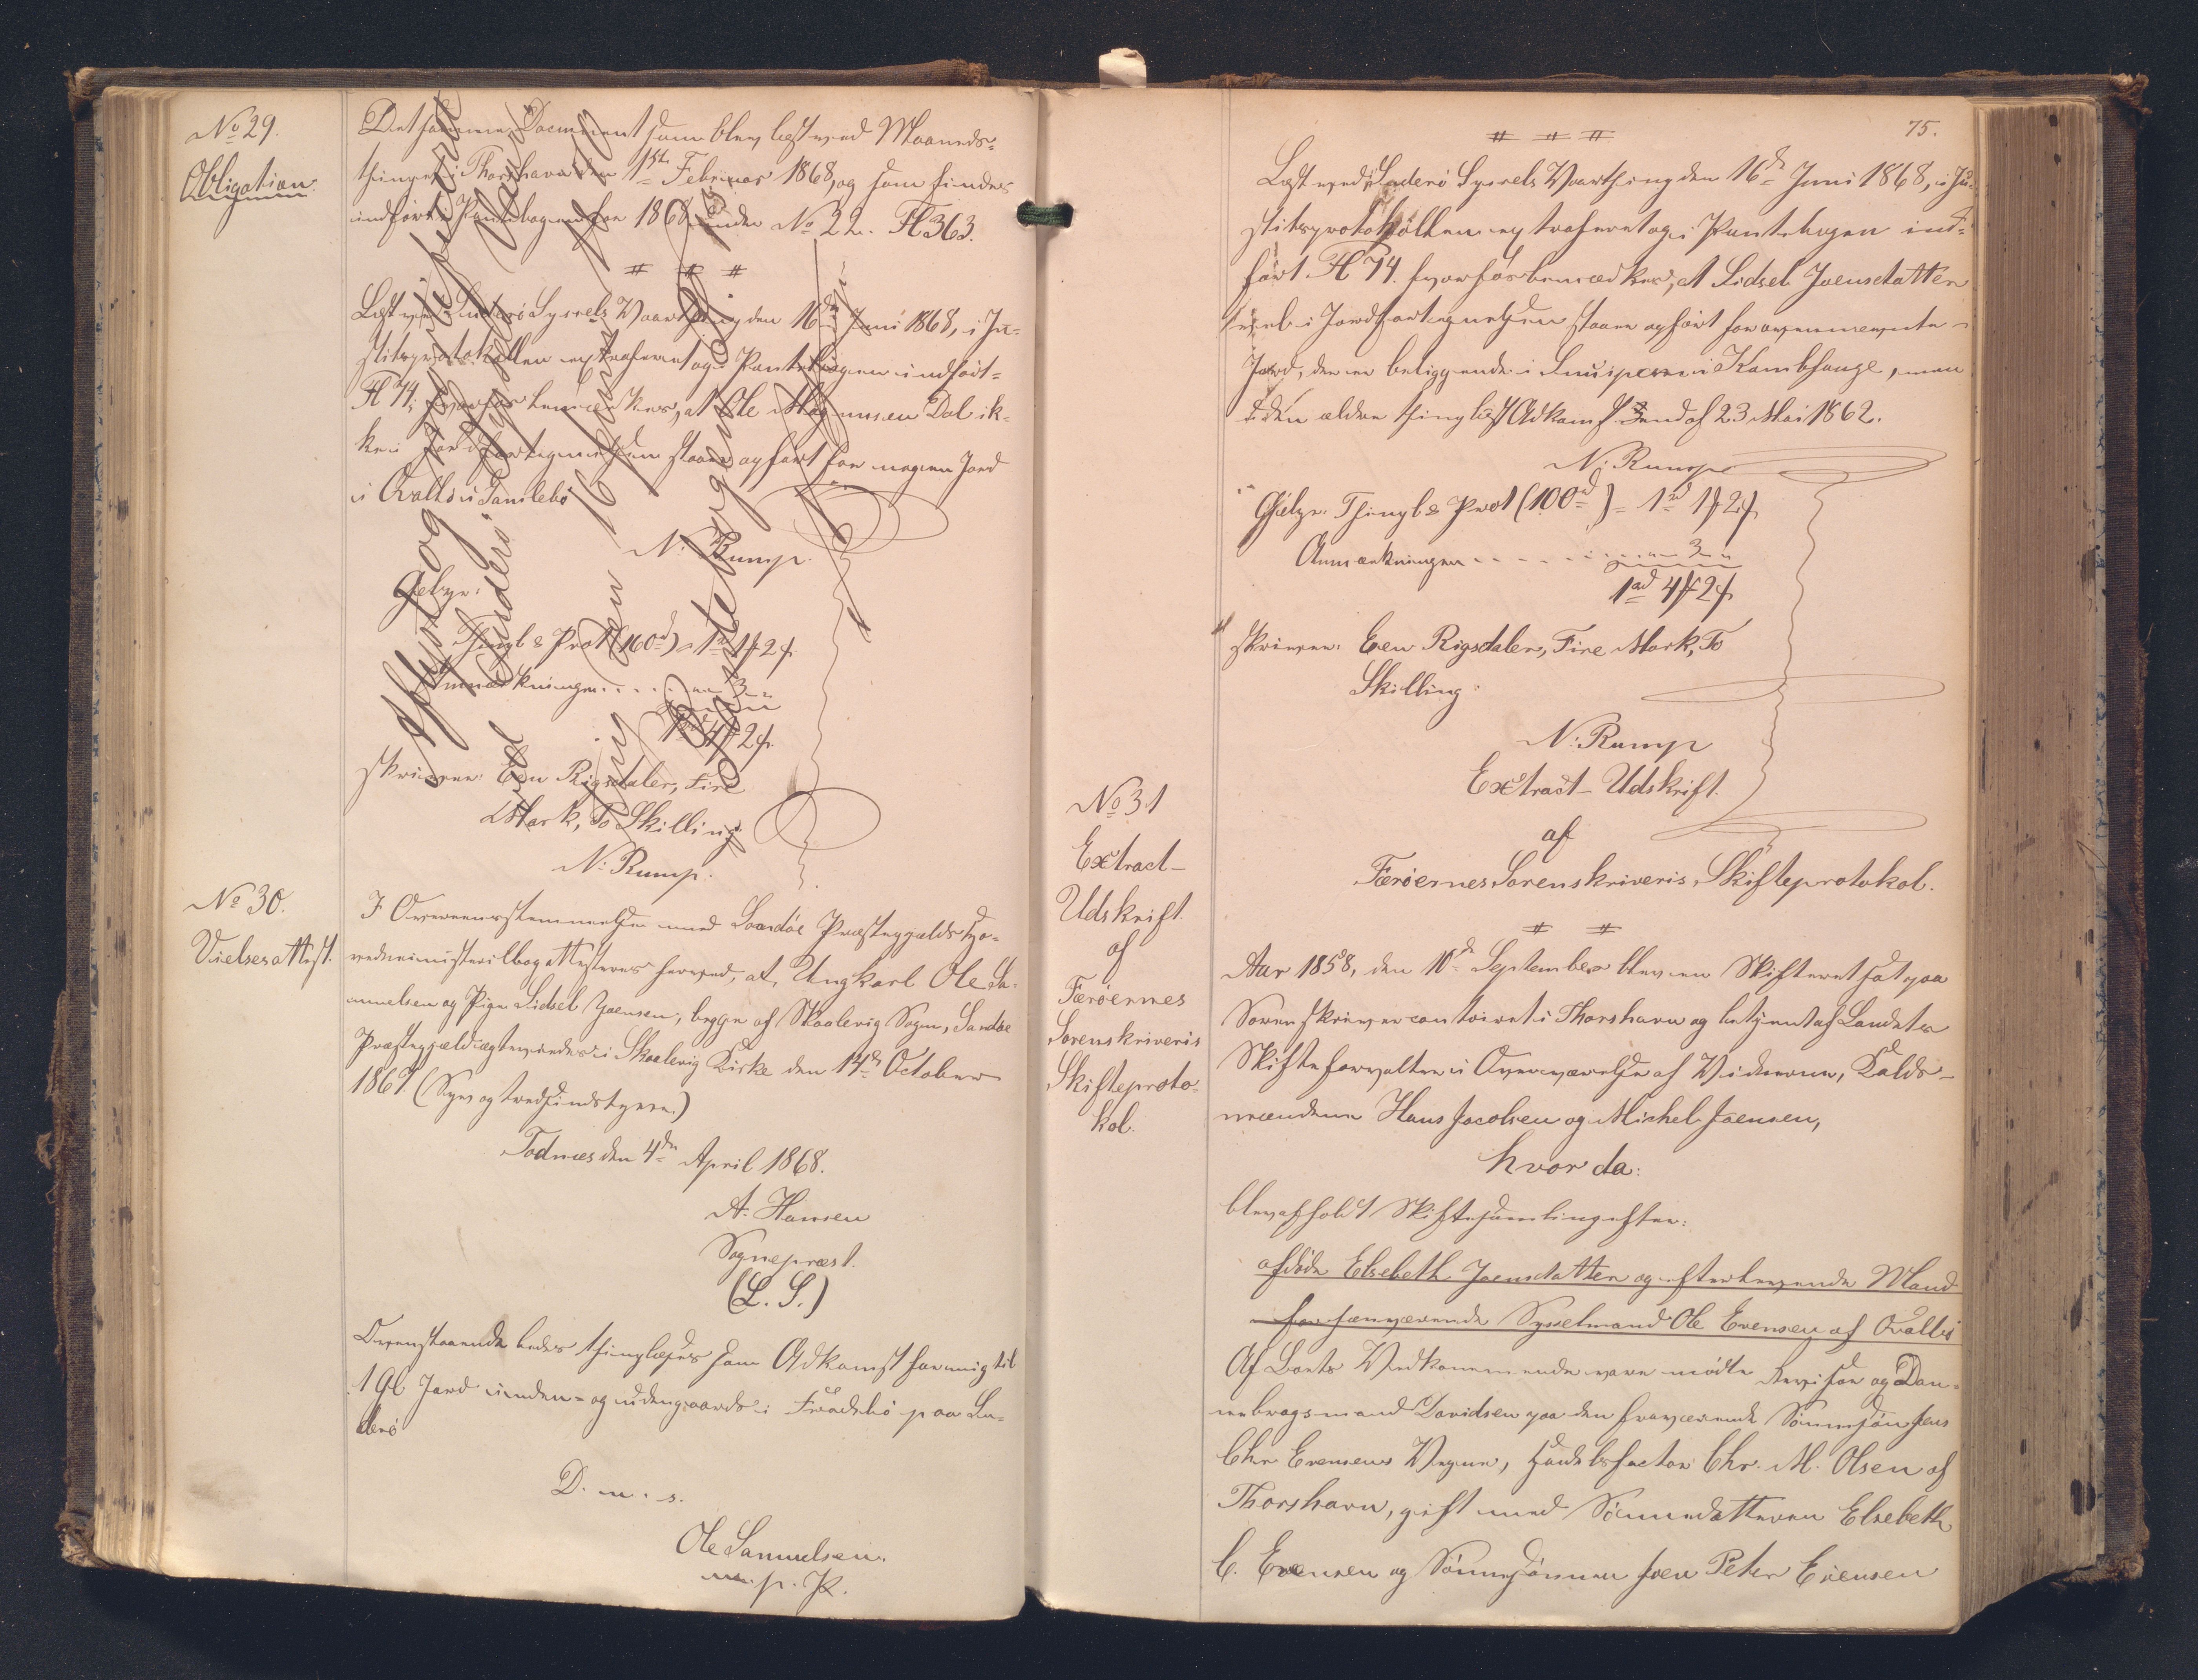 No 29.
Obligation.
Det samme Document som blev læst ved Maaneds-
thinget i Thorshavn den 1ste Februar 1868, og som findes
indført i Pantebogen for 1868 under No 22. Fl 363.
# # #
Læst ved Suderö Syssels Vaarthing den 16de Juni 1868, i Ju-
stitsprotokollen extraheret og i Pantebogen indført
Fl 74, hvorhos bemærkes, at Ole Magnussen Dal ik-
ke i Jordfortegnelsen staaer opført for nogen Jord
i Qvalbö i Famlebö
N: Rump.
Gebyr:
Thingl & Prot (100rd) = 1rd 1# 2s.
Anmærkningen . . . . . " 3 "
1rd 4# 2s.
skriver: Een Rigsdaler, Fire
Mark, To Skilling
N: Rump.
Aflyst og
ved Suderö
den 16
No 30.
Vielsesattest.
I Overeensstemmelse med Sandöe Præstegjelds Ho-
vedministerialbog attesteres herved, at Ungkarl Ole Sa-
muelsen og Pige Sidsel Joensen, begge af Skaalevig Sogn, Sandöe
Præstegjeld ægteviedes i Skaalevig Kirke den 14de October
1867 (Syv og tredsindstyve.)
Todnæs den 4de April 1868.
A. Hansen
Sognepræst.
(L. S.)
Ovenstaaende bedes thinglæses som Adkomst for mig til
1 Gl Jord inden- og udengaards i Frodebö paa Su-
derö
D. u. s.
Ole Samuelsen.
m. p. P.
75.
# # #
Læst ved Suderö Syssels Vaarthing den 16de Juni 1868, i Ju-
stitsprotokollen extraheret og i Pantebogen ind-
ført Fl 74. hvorhos bemærkes, at Sidsel Joensdatter
vel i Jordfortegnelsen staaer opført for ovennævnte
Jord, der er beliggende i men
den ældre thinglæst Adkomst end af 23 Mai 1862.
N. Rump
Gebyr: Thingl & Prot (100rd) = 1rd 1# 2s
Anmærkningen . . . . . . . " 3 "
1rd 4# 2s
skriver: Een Rigsdaler, Fire Mark, To
Skilling:
N: Rump
No 31
Extract-
Udskrift
af
Færöernes
Sorenskriveris
Skifteproto-
kol.
Extract-Udskrift.
af
Færöernes Sorenskriveris, Skifteprotokol.
# #
Aar 1858, den 10de September blev en Skifteret sat paa
Sorenskrivercontoiret i Thorshavn og betjent af Landets
Skifteforvalter i Overværelse af Vidnerne, Kalds-
mændene Hans Jacobsen og Michel Joensen,
hvor da:
blev afholdt Skiftesamling efter:
afdöde Elsebeth Joensdatter og efterlevende Mand
forhenværende Sysselmand Ole Evensen af Qvalbö
Af Boets Vedkommende vare mödte Revisor og Dan-
nebrogsmand Davidsen paa den fraværende Sönnesön Jens
Chr Evensens Vegne, Handelsfactor Chr. M. Olsen af
Thorshavn, gift med Sönnedatteren Elsebeth
C. Evensen og Sönnesönnen Joen Peter Evensen